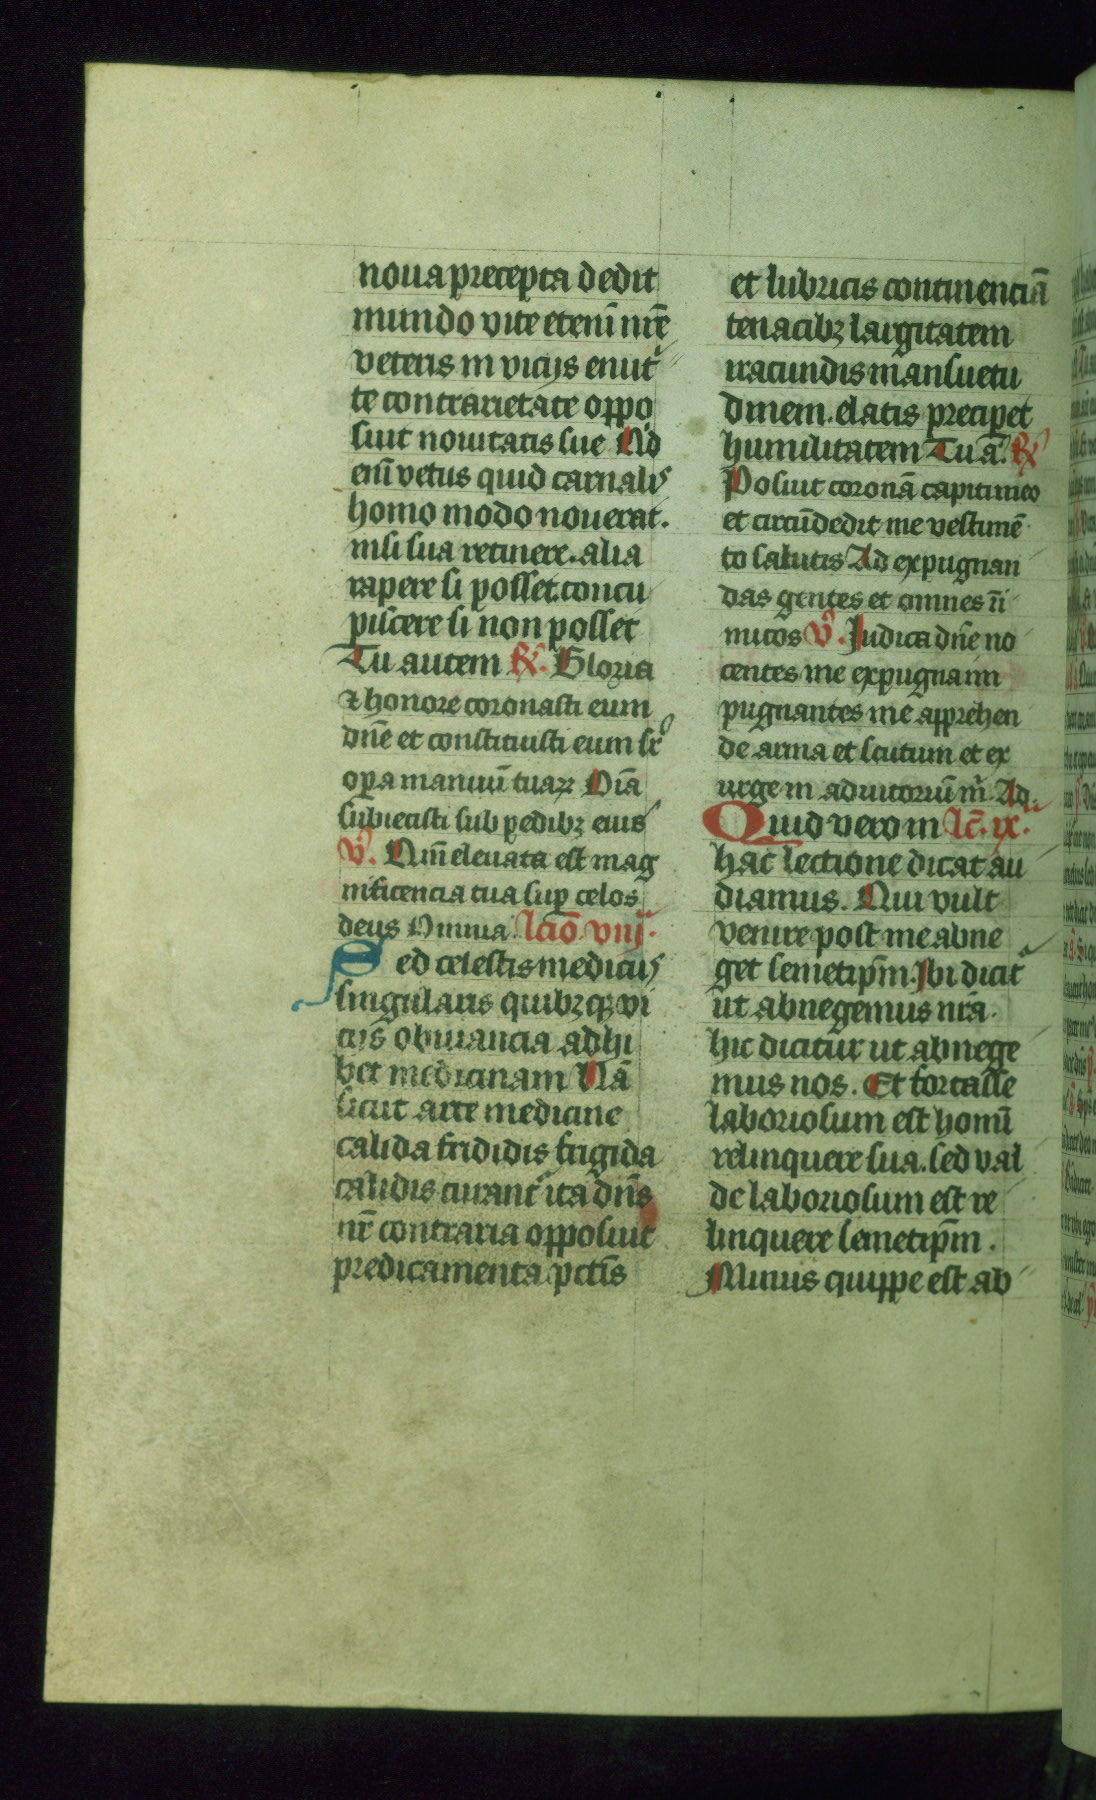 noua precepta dedit
mundo vite etenī nr̄e
veteris in vicijs enut
te contrarietate oppo
suit nouitatis sue Ad
enī vetus quid carnalis
homo modo nouerat.
nisi sua retinere. alia
rapere si posset. concu
piscere si non posset
Tu autem ℟. Gloria
⁊ honore coronasti eum
dn̄e et constituisti eum sr̄
oꝑa manuū tuaꝝ Oīa
subiecisti sub pedibꝫ eius
℣. Qm̄ eleuata est mag
nificencia tua suꝑ celos
deus Omnia lctīo viij.
Sed celestis medicus
singularis quibꝫqꝫ vi
cijs obuiancia adhi
bet medicinam Nā
sicut arte medicine
calida frididis frigida
calidis curant ita dn̄s
nr̄ contraria opposuit
predicamenta pctīs
et lubricis continenciā
tenacibꝫ largitatem
iracundis mansuetu
dinem. elatis preciper
humilitatem Tu a. ℟
Posuit coronā capiti meo
et circūdedit me vestimē
to salutis Ad expugnan
das gentes et omnes īi
micos ℣. Judica dn̄e no
centes me expugna im
pugnantes me apprehen
de arma et scutum et ex
urge in adiutoriū m̄ Ad
Quid vero in lc̄. ix.
hac lectione dicat au
diamus. Qui vult
venire post me abne
get semetip̄m. Ibi dicit
ut abnegemus nr̄a.
hic dicitur ut abnege
mus nos. Et fortasse
laboriosum est homī
relinquere sua. sed val
de laboriosum est re
linquere semetip̄m.
Minus quippe est ab